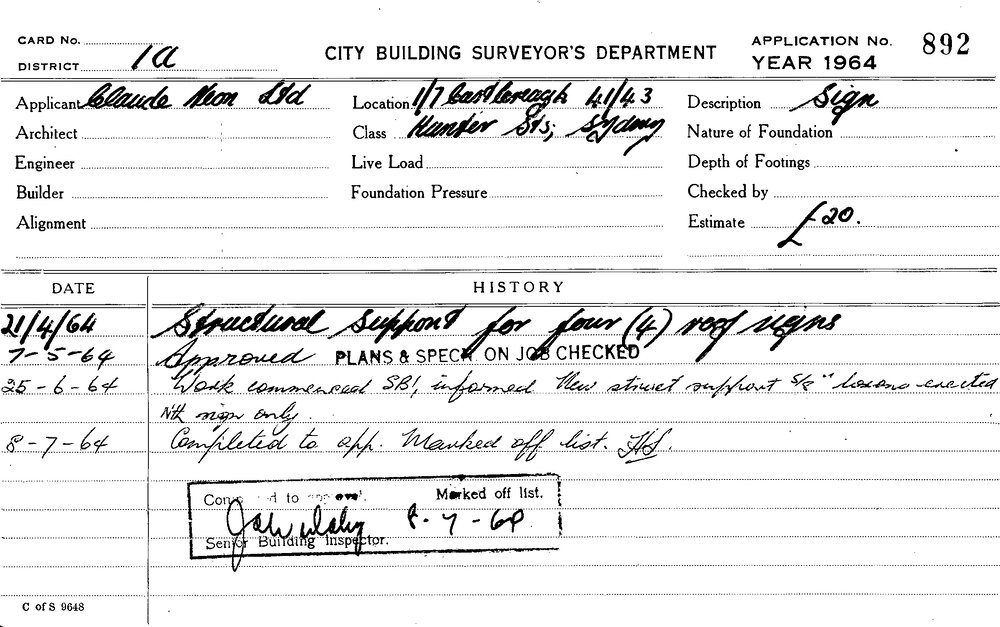 CARD No.
DISTRICT 1a
CITY BUILDING SURVEYOR'S DEPARTMENT
APPLICATION No. 892
YEAR 1964
Applicant Claude Neon Ltd
Location 1/7 Castlereagh 41/43
Description Sign
Architect
Class Hunter Sts; Sydney
Nature of Foundation
Engineer
Live Load
Depth of Footings
Builder
Foundation Pressure
Checked by
Alignment
Estimate £20.
DATE HISTORY
21/4/64 Structural support for four (4) roof signs
7-5-64 Approved PLANS & SPECN. ON JOB CHECKED
25-6-64 Work commenced SBI, informed New street support erected
Nth sign only.
8-7-64 Completed to app. Marked off list.
to approval. Marked off list.
8-7-
Senior Building Inspector.
C of S 9648